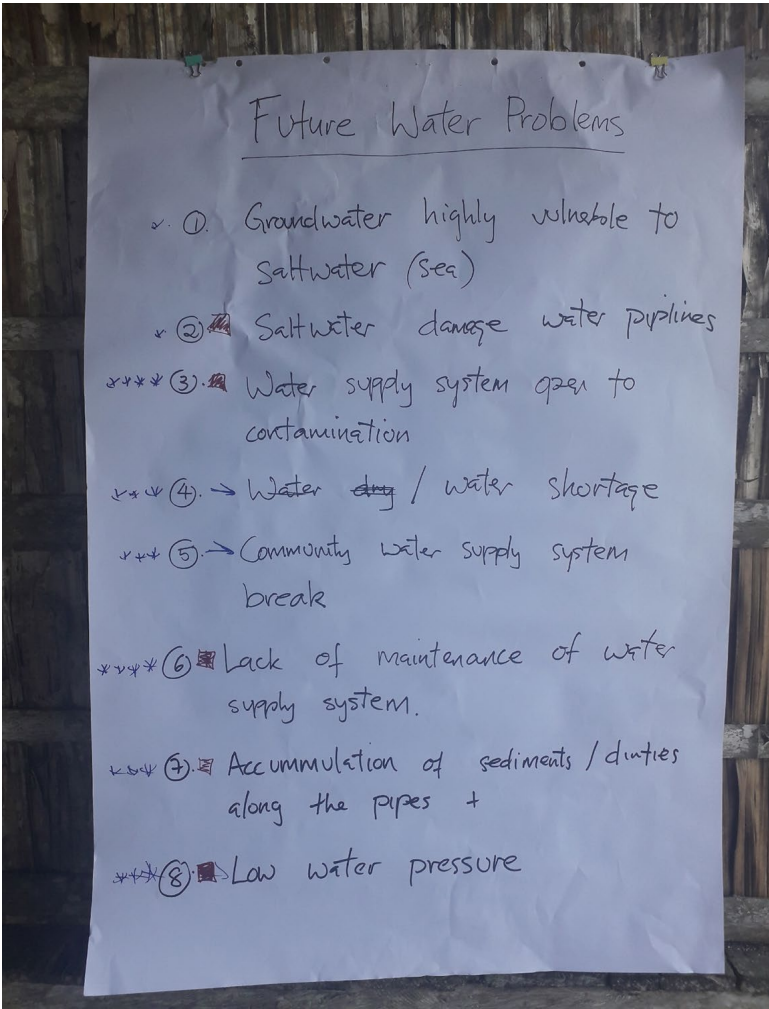 Future Water Problems
① Groundwater highly vulnerable to
saltwater (sea)
② Saltwater damage water piplines
③. Water supply system open to
contamination
④. → Water dry / water shortage
⑤. → Community water supply system
break
⑥ Lack of maintenance of water
supply system.
⑦. Accummulation of sediments / dirties
along the pipes +
⑧. Low water pressure